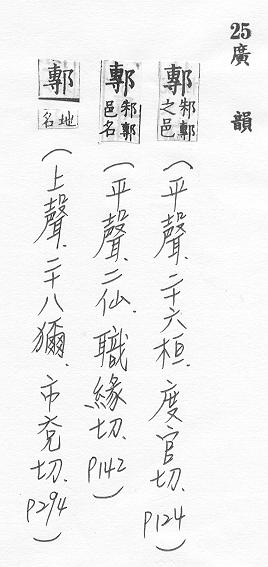 25
廣韻
鄟 邾鄟之邑
(平聲.二十六桓.度官切.P124)
鄟 邾鄟邑名
(平聲.二仙.職緣切.P142)
鄟 地名
(上聲.二十八獼.市兗切.P294)